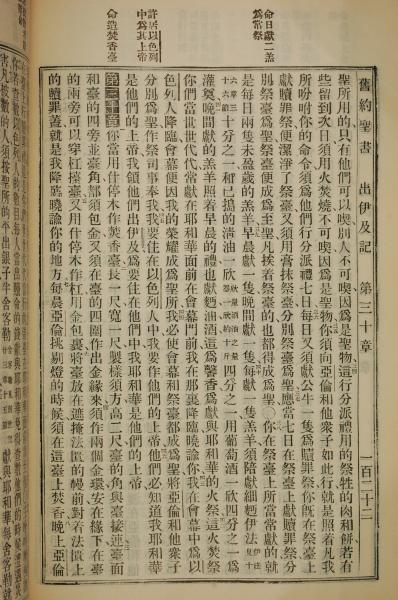 命日獻二羔
爲常祭
許居以色列
中爲其上帝
命造焚香臺
舊約聖書 出伊及記 第三十章 一百二十二
聖所用的只有他們可以喫別人不可喫因爲是聖物這行分派禮用的祭牲的肉和餅若有
些留到次日須用火焚燒不可喫因爲是聖物你須向亞倫和他衆子如此行就是照着凡我
所吩咐你的命令須爲他們行分派禮七日每日又須獻公牛一隻爲贖罪祭你旣在祭臺上
獻贖罪祭便潔淨了祭臺又須用膏抹祭臺分別祭臺爲聖應當七日在祭臺上獻贖罪祭分
別祭臺爲聖祭臺便成爲至聖凡挨着祭臺的也都得成爲聖 你在祭臺上所當常獻的就
是每日兩隻未盈歲的羔羊早晨獻一隻晚間獻一隻每獻一隻羔羊須陪獻細麵伊法
十分之一和已搗的淸油一欣 四分之一用葡萄酒一欣四分之一爲
灌奠晚間獻的羔羊照着早晨的禮也獻麵油酒這爲馨香爲獻與耶和華的火祭這火焚祭
你們當世世代代常獻在耶和華面前在會幕門前我在那裏降臨曉諭你我在會幕中爲以
色列人降臨會幕便因我的榮耀成爲聖所我必使會幕和祭臺都成爲聖將亞倫和他衆子
分別爲聖作祭司事奉我我要住在以色列人中我要作他們的上帝他們必知道我耶和華
是他們的上帝我領他們出伊及爲要住在他們中我耶和華是他們的上帝
第三十章 你當用什停木作焚香臺長一尺寬一尺製樣須方高二尺臺的角與臺接連臺面
和臺的四旁並臺角都須包金又須在臺的四圍作出金緣來須作兩個金環安在緣下在臺
的兩旁可以穿杠擡臺又用什停木作杠用金包裹將臺放在遮掩法匱的幔前對着法匱上
的贖罪蓋就是我降臨曉諭你的地方每晨亞倫挑剔燈的時候須在這臺上焚香晚上亞倫